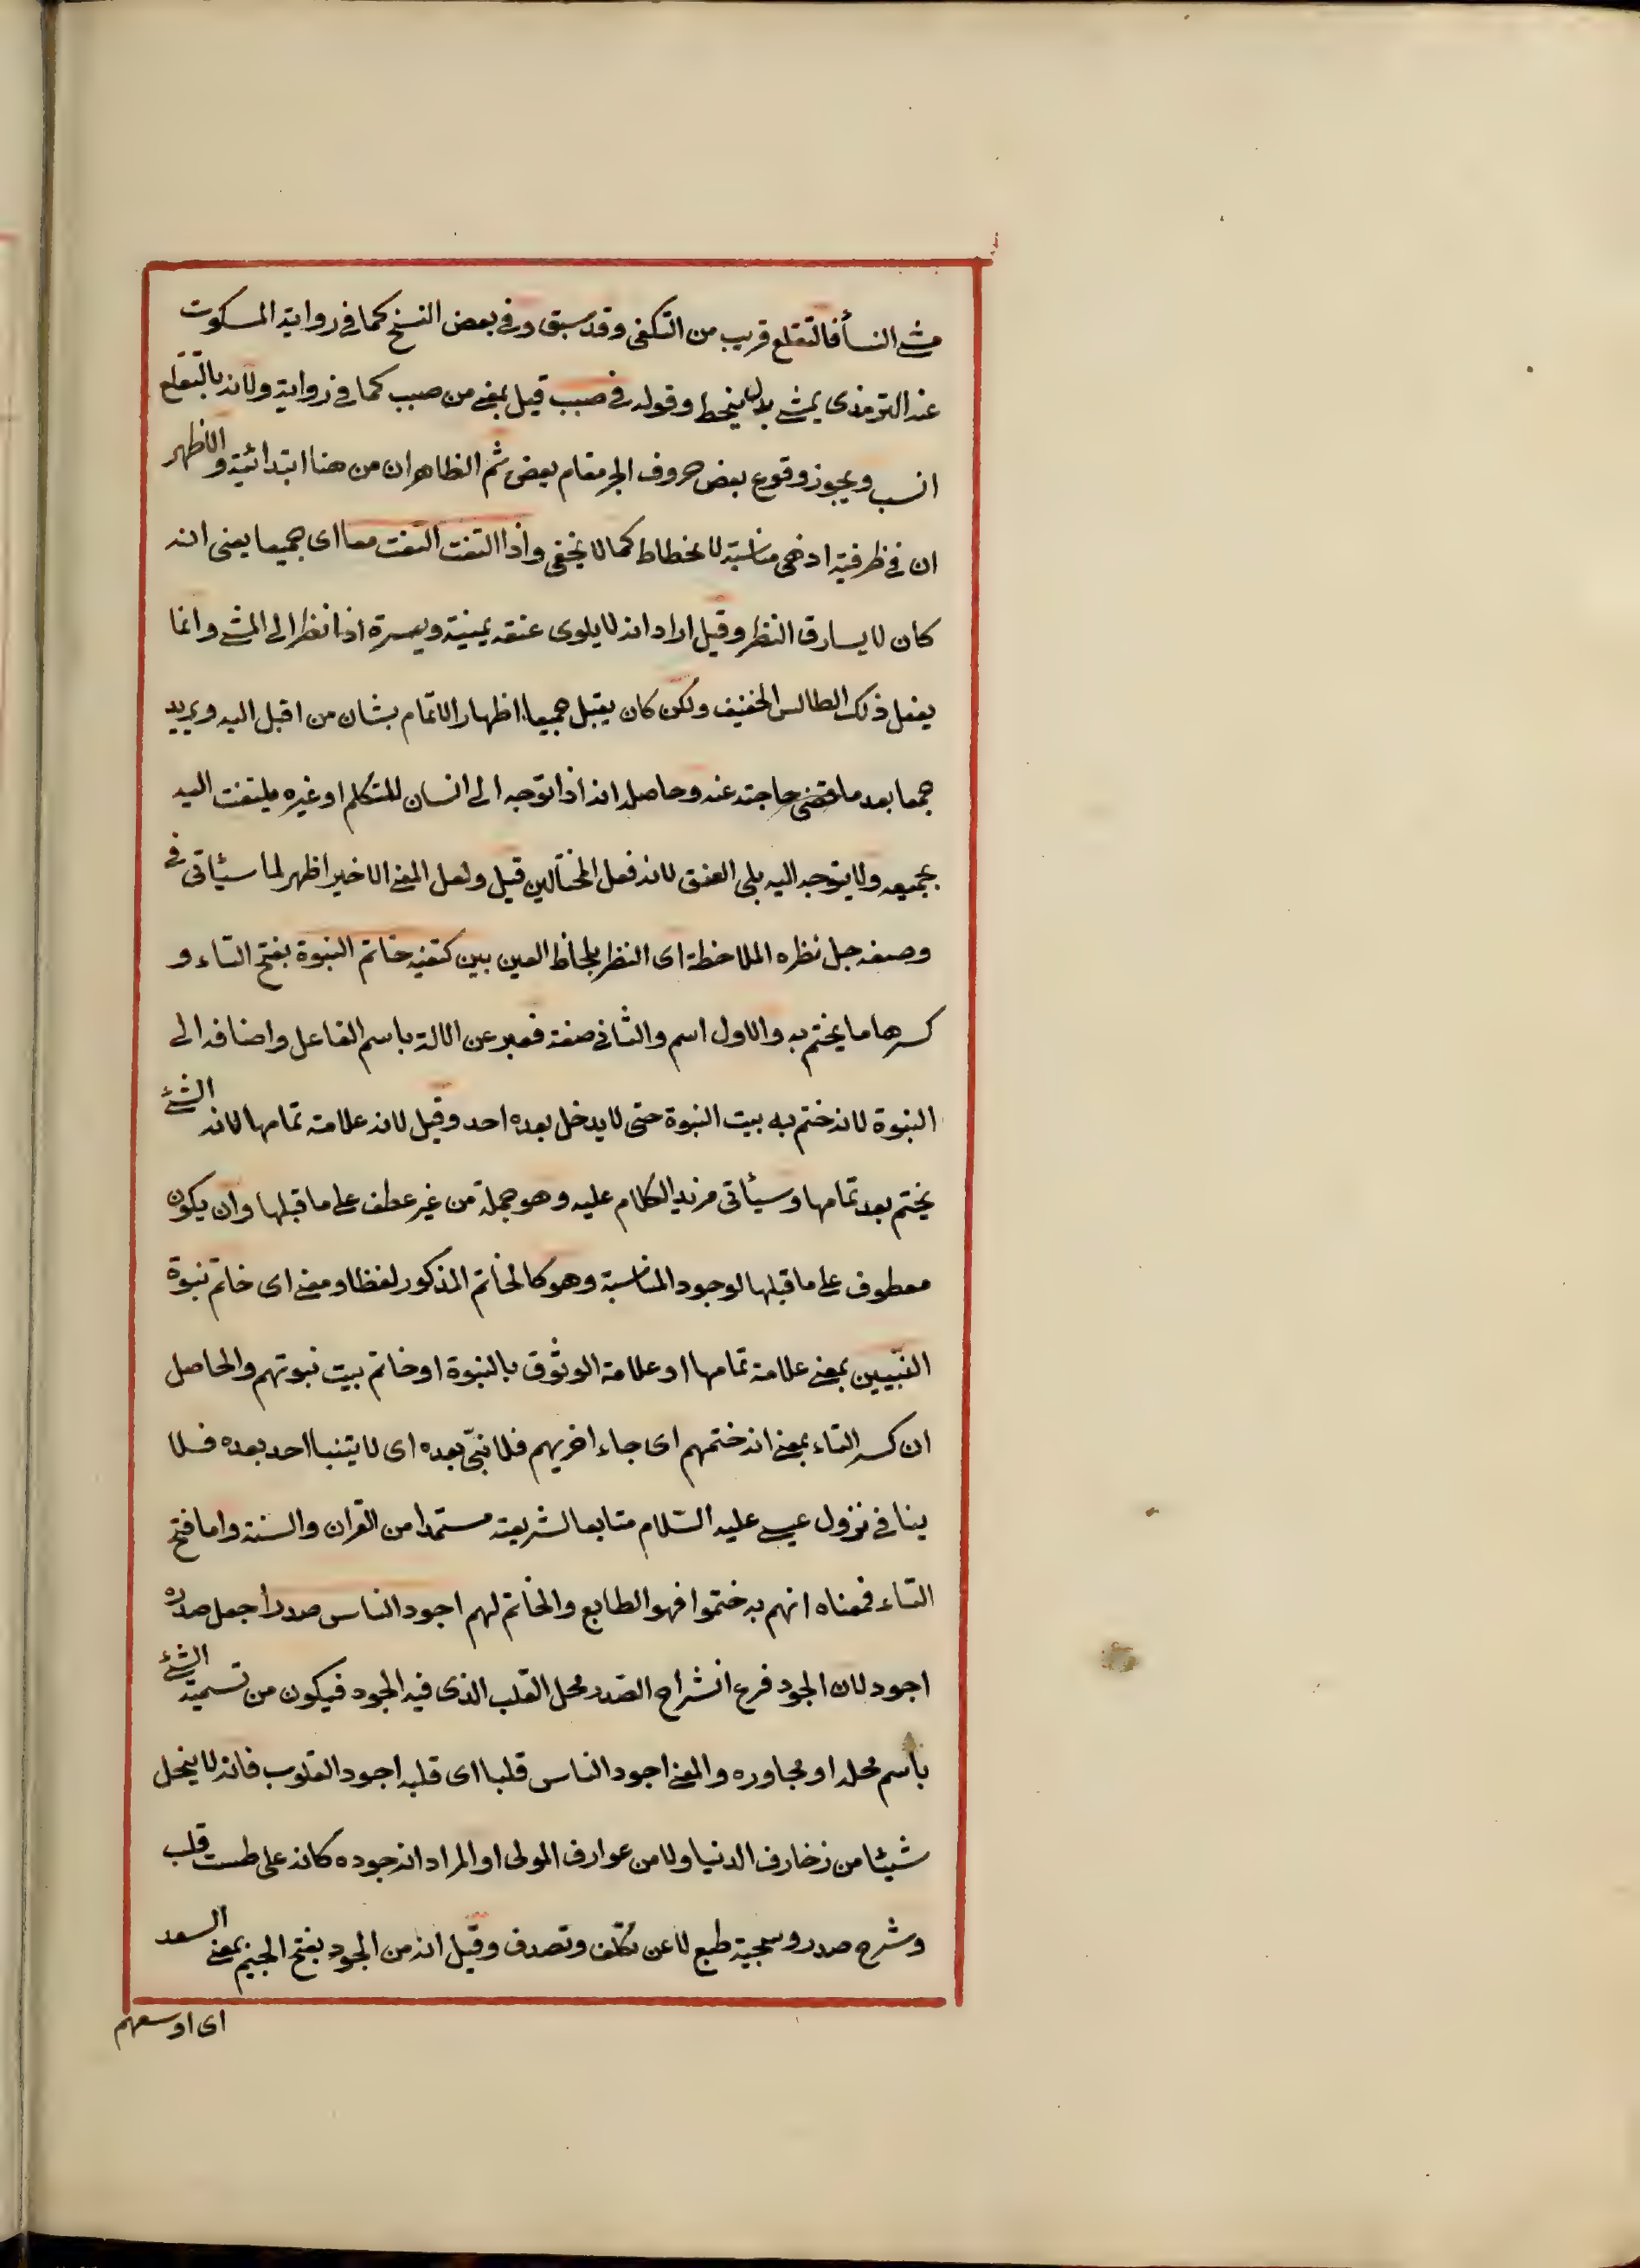 مشى النسأ فالتقلع قريب من التكفى وقد سبق وفى بعض النسخ كما فى رواية المسكوت
عند الترمذى يمشى بدل ينحط وقوله فى صبب قيل بمعنى من صبب كما فى رواية ولانه بالتقلع
انسب ويجوز وقوع بعض حروف الجر مقام بعض ثم الظاهر ان من هنا ابتدائية والاظهر
ان فى ظرفية اذ هى مناسبة للانحطاط كما لا يخفى واذا التفت التفت معا اى جميعا يعنى انه
كان لا يسارق النظر وقيل اراد انه لا يلوى عنقه يمينة ويسرة اذا نظر الى الشئ وانما
يفعل ذلك الطالس الخفيف ولكن كان يقبل جميعا اظهارا للاتمام بشان من اقبل اليه ويريد
جمعا بعد ما قضى حاجته عنه وحاصله انه اذا توجه الى انسان للتكلم او غيره يلتفت اليه
بجميعه ولا يتوجه اليه بلى العنق لانه فعل المختالين قيل ولعل المعنى الاخير اظهر لما سيئاتى فى
وصفه جل نظره الملاحظة اى النظر بلحاظ العين بين كتفيه خاتم النبوة بفتح التاء و
كسرها ما يختم به والاول اسم والثانى صفة فعبر عن الالة باسم الفاعل واضافه الى
النبوة لانه ختم به بيت النبوة حتى لا يدخل بعده احد وقيل لانه علامة تمامها لانه الشئ
يختم بعد تمامها وسيئاتى مزيد الكلام عليه وهو جملة من غير عطف على ما قبلها وان يكون
معطوف على ما قبلها لوجود المناسبة وهو كالخاتم المذكور لفظا ومعنى اى خاتم نبوة
النبيين بمعنى علامة تمامها او علامة الوثوق بالنبوة او خاتم بيت نبوتهم والحاصل
ان كسر التاء بمعنى انه ختمهم اى جاء اخريهم فلا نبى بعده اى لا يتنبا احد بعده فلا
ينافى نزول عيسى عليه السلام متابعا لشريعته مستمدا من القران والسنة واما فتح
التاء فمعناه انهم به ختموا فهو الطابع والخاتم لهم اجود الناس صدرا جعل صدره
اجود لان الجود فرع انشراح الصدر محل القلب الذى فيه الجود فيكون من تسمية الشئ
باسم محله او مجاوره والمعنى اجود الناس قلبا اى قلبه اجود القلوب فانه لا يبخل
شيئا من زخارف الدنيا ولا من عوارف المولى او المراد انه جوده كانه على طست قلب
وشرح صدر وسجية طبع لا عن تكلف وتصدف وقيل انه من الجود بفتح الجيم بمعنى السعد
اى اوسعهم